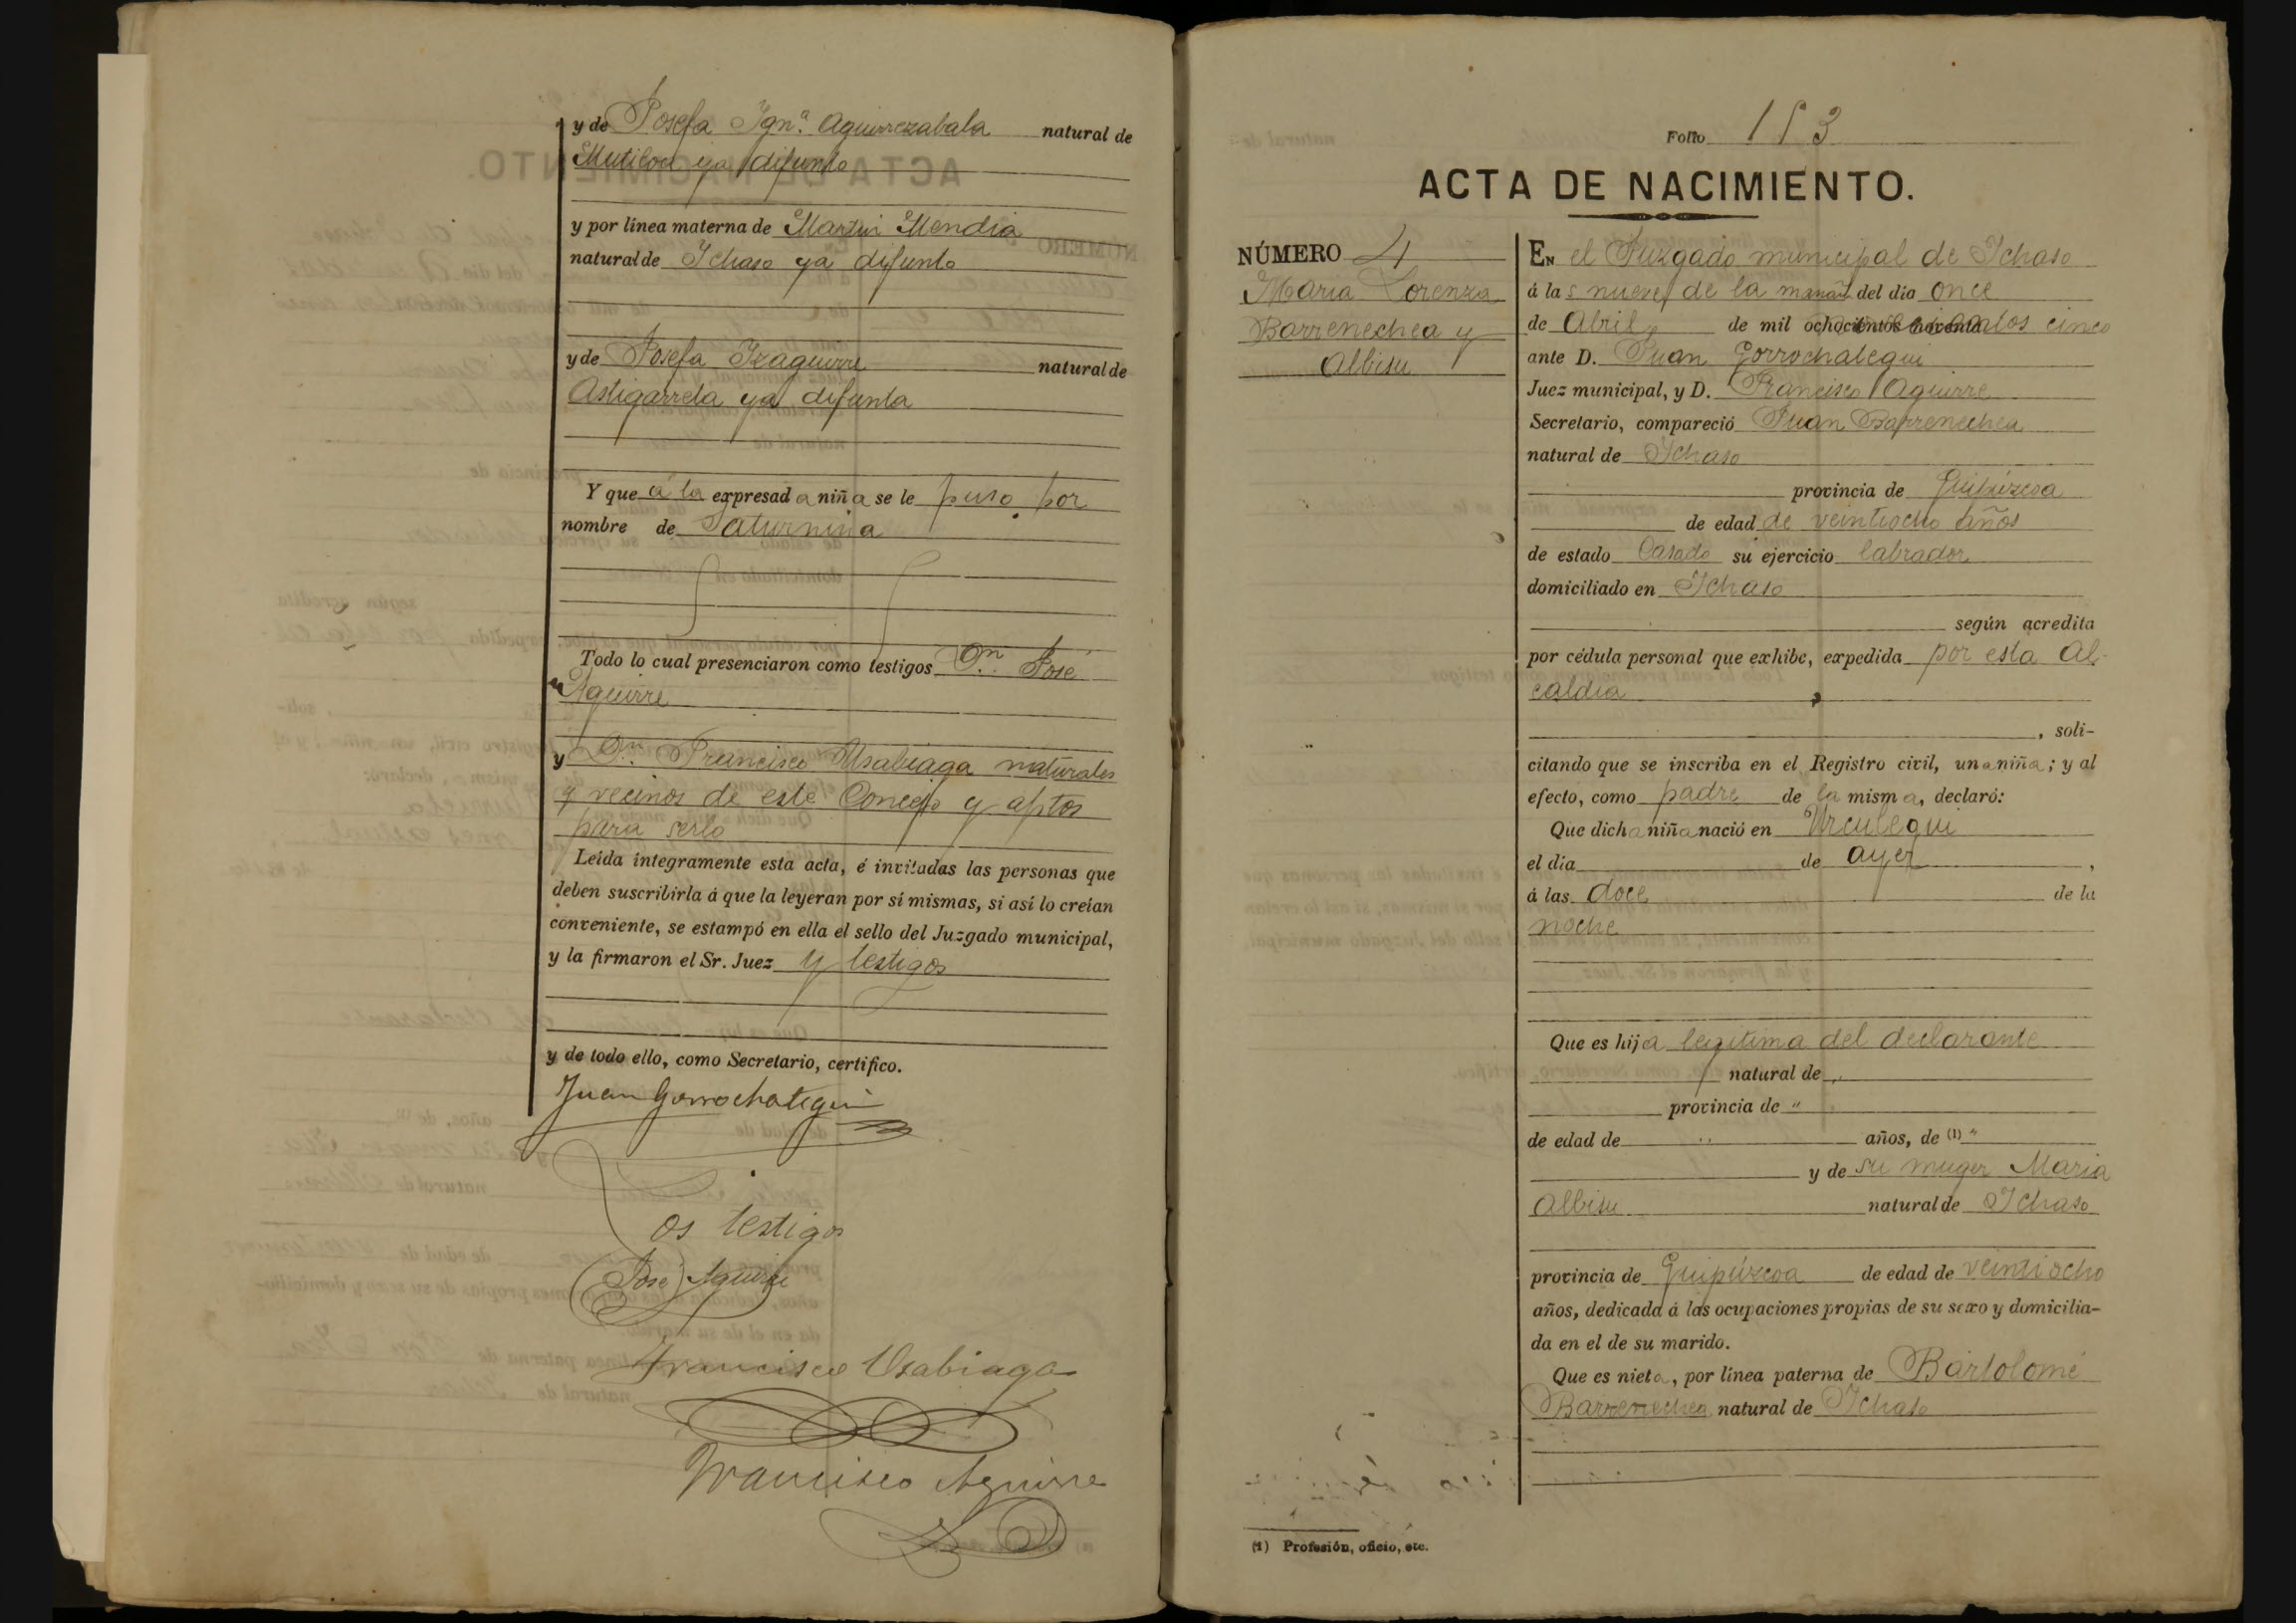 y de Josefa Ygn.ª Aguirrezabala natural de
Mutiloa ya difunto
y por línea materna de Martin Mendia
natural de Ychaso ya difunto
y de Josefa Yzaguirre natural de
Astigarreta ya difunta
Y que á la expresada niña se le puso por
nombre de Saturnina
Todo lo cual presenciaron como testigos Dn. José
Aguirre
y Dn. Francisco Usabiaga naturales
y vecinos de este Concejo y aptos
para serlo
Leída íntegramente esta acta, é invitadas las personas que
deben suscribirla á que la leyeran por sí mismas, si así lo creían
conveniente, se estampó en ella el sello del Juzgado municipal,
y la firmaron el Sr. Juez y testigos
y de todo ello, como Secretario, certifico.
Juan Gorrochategui
Los testigos
José Aguirre
Francisco Usabiaga
Francisco Aguirre
Folio 153
ACTA DE NACIMIENTO.
NÚMERO 4
Maria Lorenza
Barrenechea y
Albisu
En el Juzgado municipal de Ychaso
á las nueve de la mañana del día once
de Abril de mil novecientos cinco
ante D. Juan Gorrochategui
Juez municipal, y D. Francisco Aguirre
Secretario, compareció Juan Barrenechea
natural de Ychaso
provincia de Guipúzcoa
de edad de veintiocho años
de estado Casado su ejercicio labrador
domiciliado en Ychaso
según acredita
por cédula personal que exhibe, expedida por esta Al-
caldia
, soli-
citando que se inscriba en el Registro civil, una niña; y al
efecto, como padre de la misma, declaró:
Que dicha niña nació en Urculegui
el día de ayer,
á las doce de la
noche
Que es hija legitima del declarante
natural de "
provincia de "
de edad de " años, de (1) "
y de su muger Maria
Albisu natural de Ychaso
provincia de Guipúzcoa de edad de veintiocho
años, dedicada á las ocupaciones propias de su sexo y domicilia-
da en el de su marido.
Que es nieta, por línea paterna de Bartolomé
Barrenechea natural de Ychaso
(1) Profesión, oficio, etc.